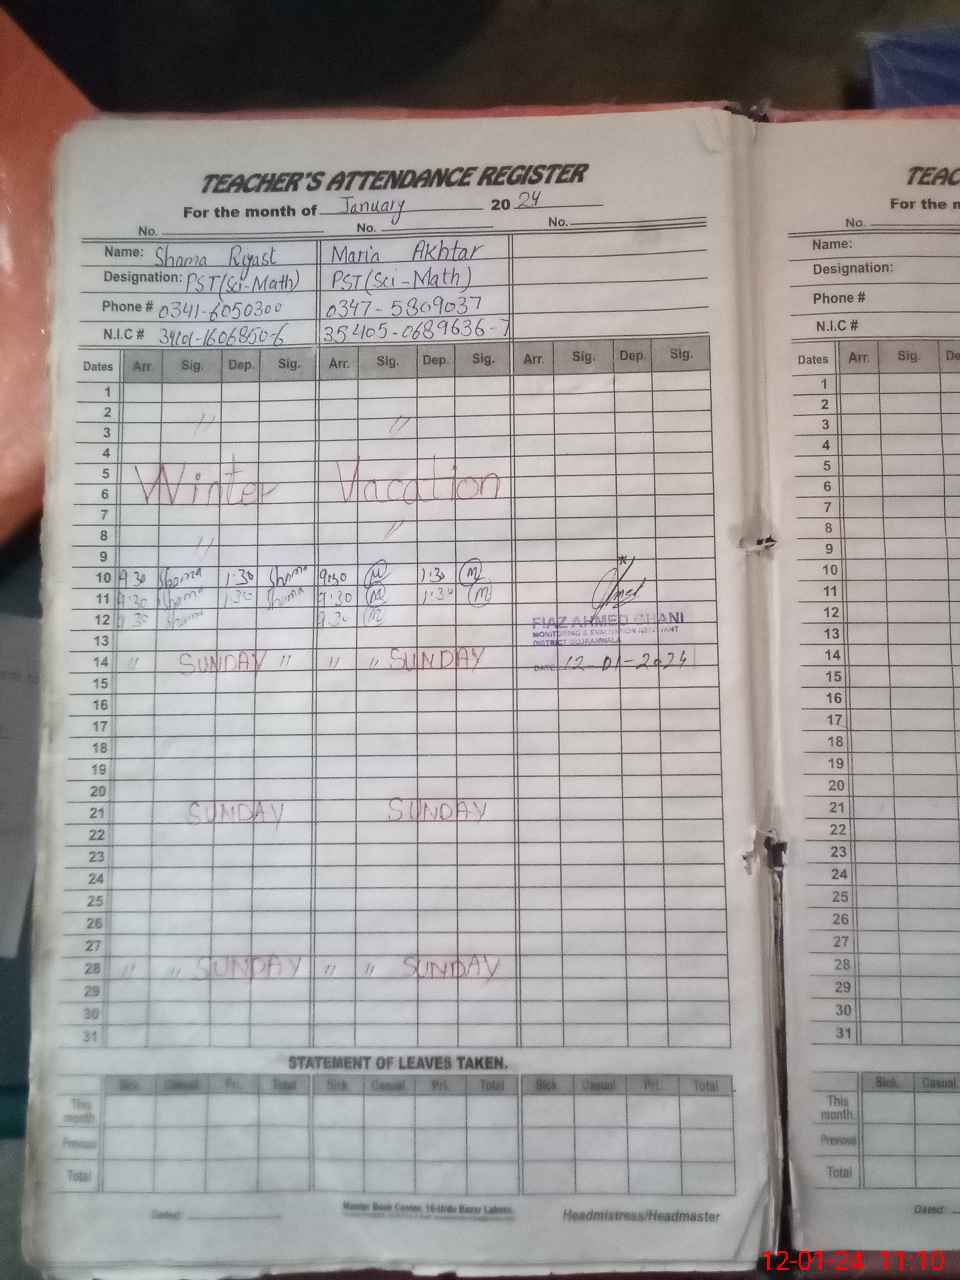 TEACHER'S ATTENDANCE REGISTER
For the month of January 2024
No. No. No.
Name: Shama Riyast Maria Akhtar
Designation: PST(Sci-Math) PST(Sci-Math)
Phone # 0341-6050300 0347-5809037
N.I.C # 34101-1606850-6 35405-0689636-7
Dates Arr. Sig. Dep. Sig. Arr. Sig. Dep. Sig. Arr. Sig. Dep. Sig.
1
2
3 " "
4
5
6 Winter Vacation
7
8 " "
9
10 9:30 Shama 1:30 Shama 9:30 M 1:30 M
11 9:30 Shama 1:30 Shama 9:30 M 1:30 M
12 9:30 Shama 9:30 M
FIAZ AHMED GHANI
MONITORING & EVALUATION ASSISTANT
DISTRICT GUJRANWALA
13
14 " SUNDAY " " " SUNDAY DATE: 12-01-2024
15
16
17
18
19
20
21 SUNDAY SUNDAY
22
23
24
25
26
27
28 " " SUNDAY " " SUNDAY
29
30
31
STATEMENT OF LEAVES TAKEN.
Sick Casual Pri. Total Sick Casual Pri. Total Sick Casual Pri. Total
This month
Previous
Total
Dated: Master Book Center, 16-Urdu Bazar Lahore. Headmistress/Headmaster
TEAC
For the m
No.
Name:
Designation:
Phone #
N.I.C #
Dates Arr. Sig. De
1
2
3
4
5
6
7
8
9
10
11
12
13
14
15
16
17
18
19
20
21
22
23
24
25
26
27
28
29
30
31
Sick Casual
This month
Previous
Total
Dated:
12-01-24 11:10